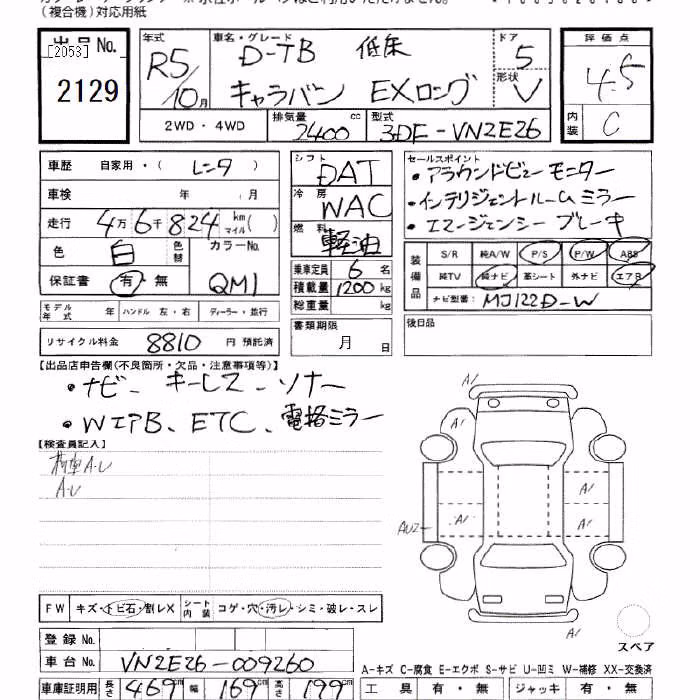 (複合機)対応用紙
出品No. [2053] 2129
年式 R5/10月
車名・グレード D-TB 低床 キャラバン EXロング
ドア 5
形状 V
評価点 4.5
内装 C
2WD・4WD
排気量 2400 cc
型式 3DF-VN2E26
車歴 自家用・( レンタ )
車検 年 月
走行 4万6千824 km マイル( )
色 白 色替 カラーNo. QM1
保証書 有・無
シフト DAT
冷房 WAC
燃料 軽油
乗車定員 6 名
積載量 1200 kg
総重量 kg
セールスポイント
・アラウンドビューモニター
・インテリジェントルームミラー
・エマージェンシーブレーキ
装備品 S/R 純A/W P/S P/W ABS
純TV 純ナビ 革シート 外ナビ エアB
ナビ型番: MJ122D-W
モデル年式 年 ハンドル 左・右 ディーラー・並行
リサイクル料金 8810 円 預託済
書類期限 月 日
後日品
【出品店申告欄(不良箇所・欠品・注意事項等)】
・ナビ、キーレス、ソナー
・WエアB、ETC、電格ミラー
【検査員記入】
A・レ
A・レ
A1
A1
A1
A1
A1
AU2
A1
FW キズ・トビ石・割レX シート内装 コゲ・穴・汚レ・シミ・破レ・スレ
スペア
登録No.
車台No. VN2E26-009260
A-キズ C-腐食 E-エクボ S-サビ U-凹ミ W-補修 XX-交換済
車庫証明用 長さ 469 幅 169 高さ 199 cm
工具 有・無 ジャッキ 有・無